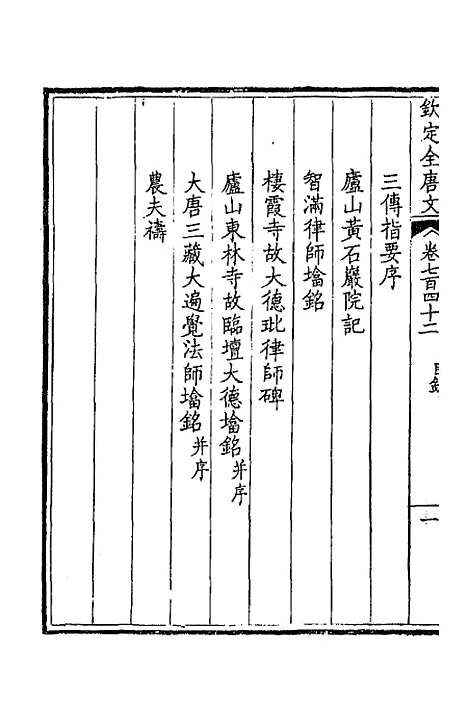 欽定全唐文 卷七百四十二 目錄 一
三傳指要序
廬山黃石巖院記
智滿律師塔銘
棲霞寺故大德玭律師碑
廬山東林寺故臨壇大德塔銘并序
大唐三藏大遍覺法師塔銘并序
農夫禱